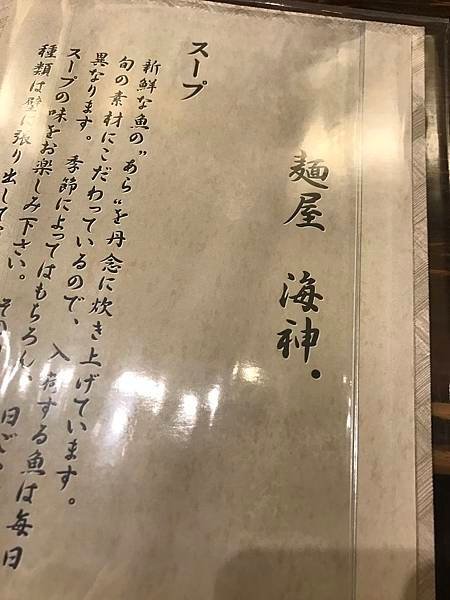 麺屋 海神.
スープ
新鮮な魚の"あら"を丹念に炊き上げています。
旬の素材にこだわっているので、入荷する魚は毎日
異なります。季節によってはもちろん、日で
スープの味をお楽しみ下さい。その
種類は壁に張り出して